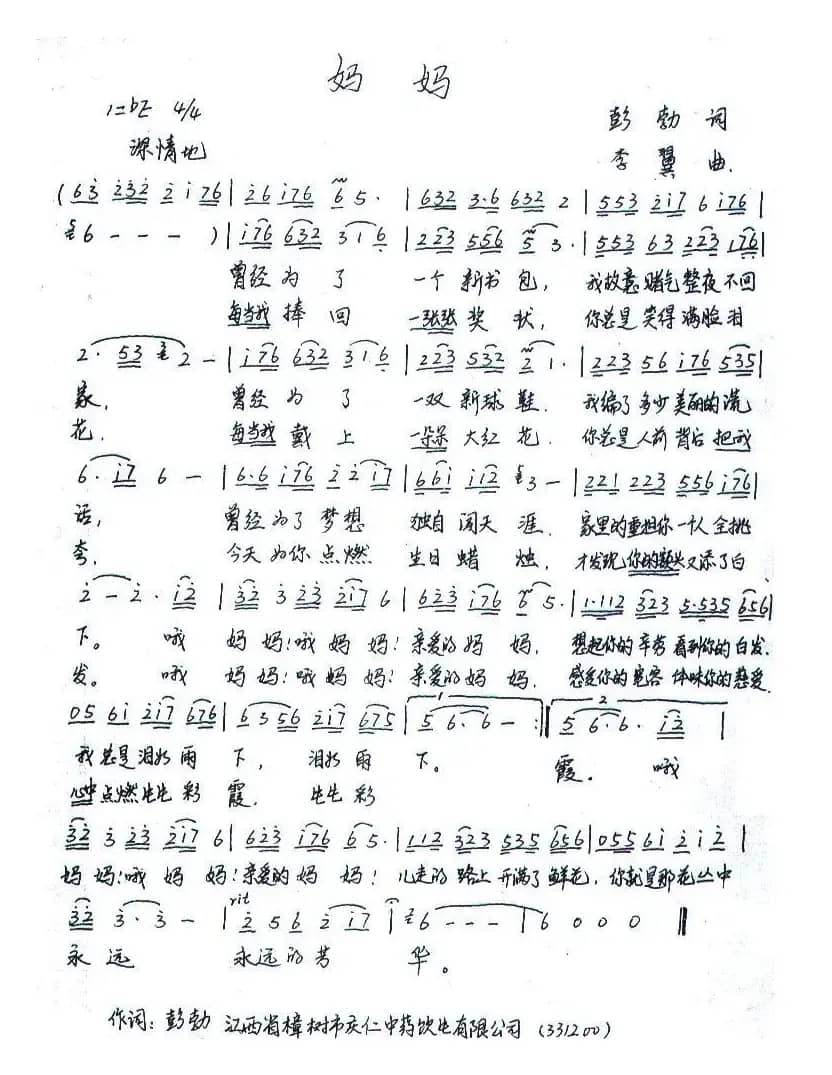 妈 妈
1=bE 4/4
彭 勃 词
深情地
李 翼 曲.
(6 3 2 3 2 2 1 7 6 | 2 6 1 7 6 6 5 · | 6 3 2 3 · 6 6 3 2 2 | 5 5 3 2 1 7 6 1 7 6 |
6 - - - ) | 1 7 6 6 3 2 3 1 6 | 2 2 3 5 5 6 5 3 · | 5 5 3 6 3 2 2 3 1 7 6 |
曾经为了 一个新书包, 我故意赌气整夜不回
每当我捧回 一张张奖状, 你总是笑得满脸泪
2 · 5 3 2 - | 1 7 6 6 3 2 3 1 6 | 2 2 3 5 3 2 2 1 · | 2 2 3 5 6 1 7 6 5 3 5 |
家, 曾经为了 一双新球鞋. 我编了多少美丽的谎
花. 每当我戴上 一朵朵大红花. 你总是人前背后把我
6 · 1 7 6 - | 6 · 6 1 7 6 2 2 1 7 | 6 6 1 1 1 2 3 - | 2 2 1 2 2 3 5 5 6 1 7 6 |
话, 曾经为了梦想 独自闯天涯. 家里的重担你一人全挑
夸. 今天为你点燃 生日蜡烛, 才发现你的额头又添了白
2 - 2 · 1 2 | 3 2 3 2 3 2 1 7 6 | 6 2 3 1 7 6 6 5 · | 1 · 1 1 2 3 2 3 5 · 5 3 5 6 5 6 |
下。 哦 妈妈!哦妈妈!亲爱的妈妈. 想起你的辛劳看到你的白发.
发。 哦 妈妈!哦妈妈!亲爱的妈妈. 感受你的宽容体味你的慈爱
0 5 6 1 2 1 7 6 7 6 | 6 3 5 6 2 1 7 6 7 5 | 1 5 6 · 6 - :‖ 2 5 6 · 6 · 1 2 |
我总是泪如雨下, 泪如雨下。 霞. 哦
心中点燃生生彩霞. 生生彩
3 2 3 2 3 2 1 7 6 | 6 2 3 1 7 6 6 5 · | 1 1 2 3 2 3 5 3 5 6 5 6 | 0 5 5 6 1 2 1 2 |
妈妈!哦妈妈!亲爱的妈妈! 儿走的路上开满了鲜花, 你就是那花丛中
rit
3 2 3 · 3 - | 2 5 6 2 1 7 | 6 - - - | 6 0 0 0 ‖
永远 永远的芳华。
作词: 彭勃 江西省樟树市庆仁中药饮片有限公司 (331200)